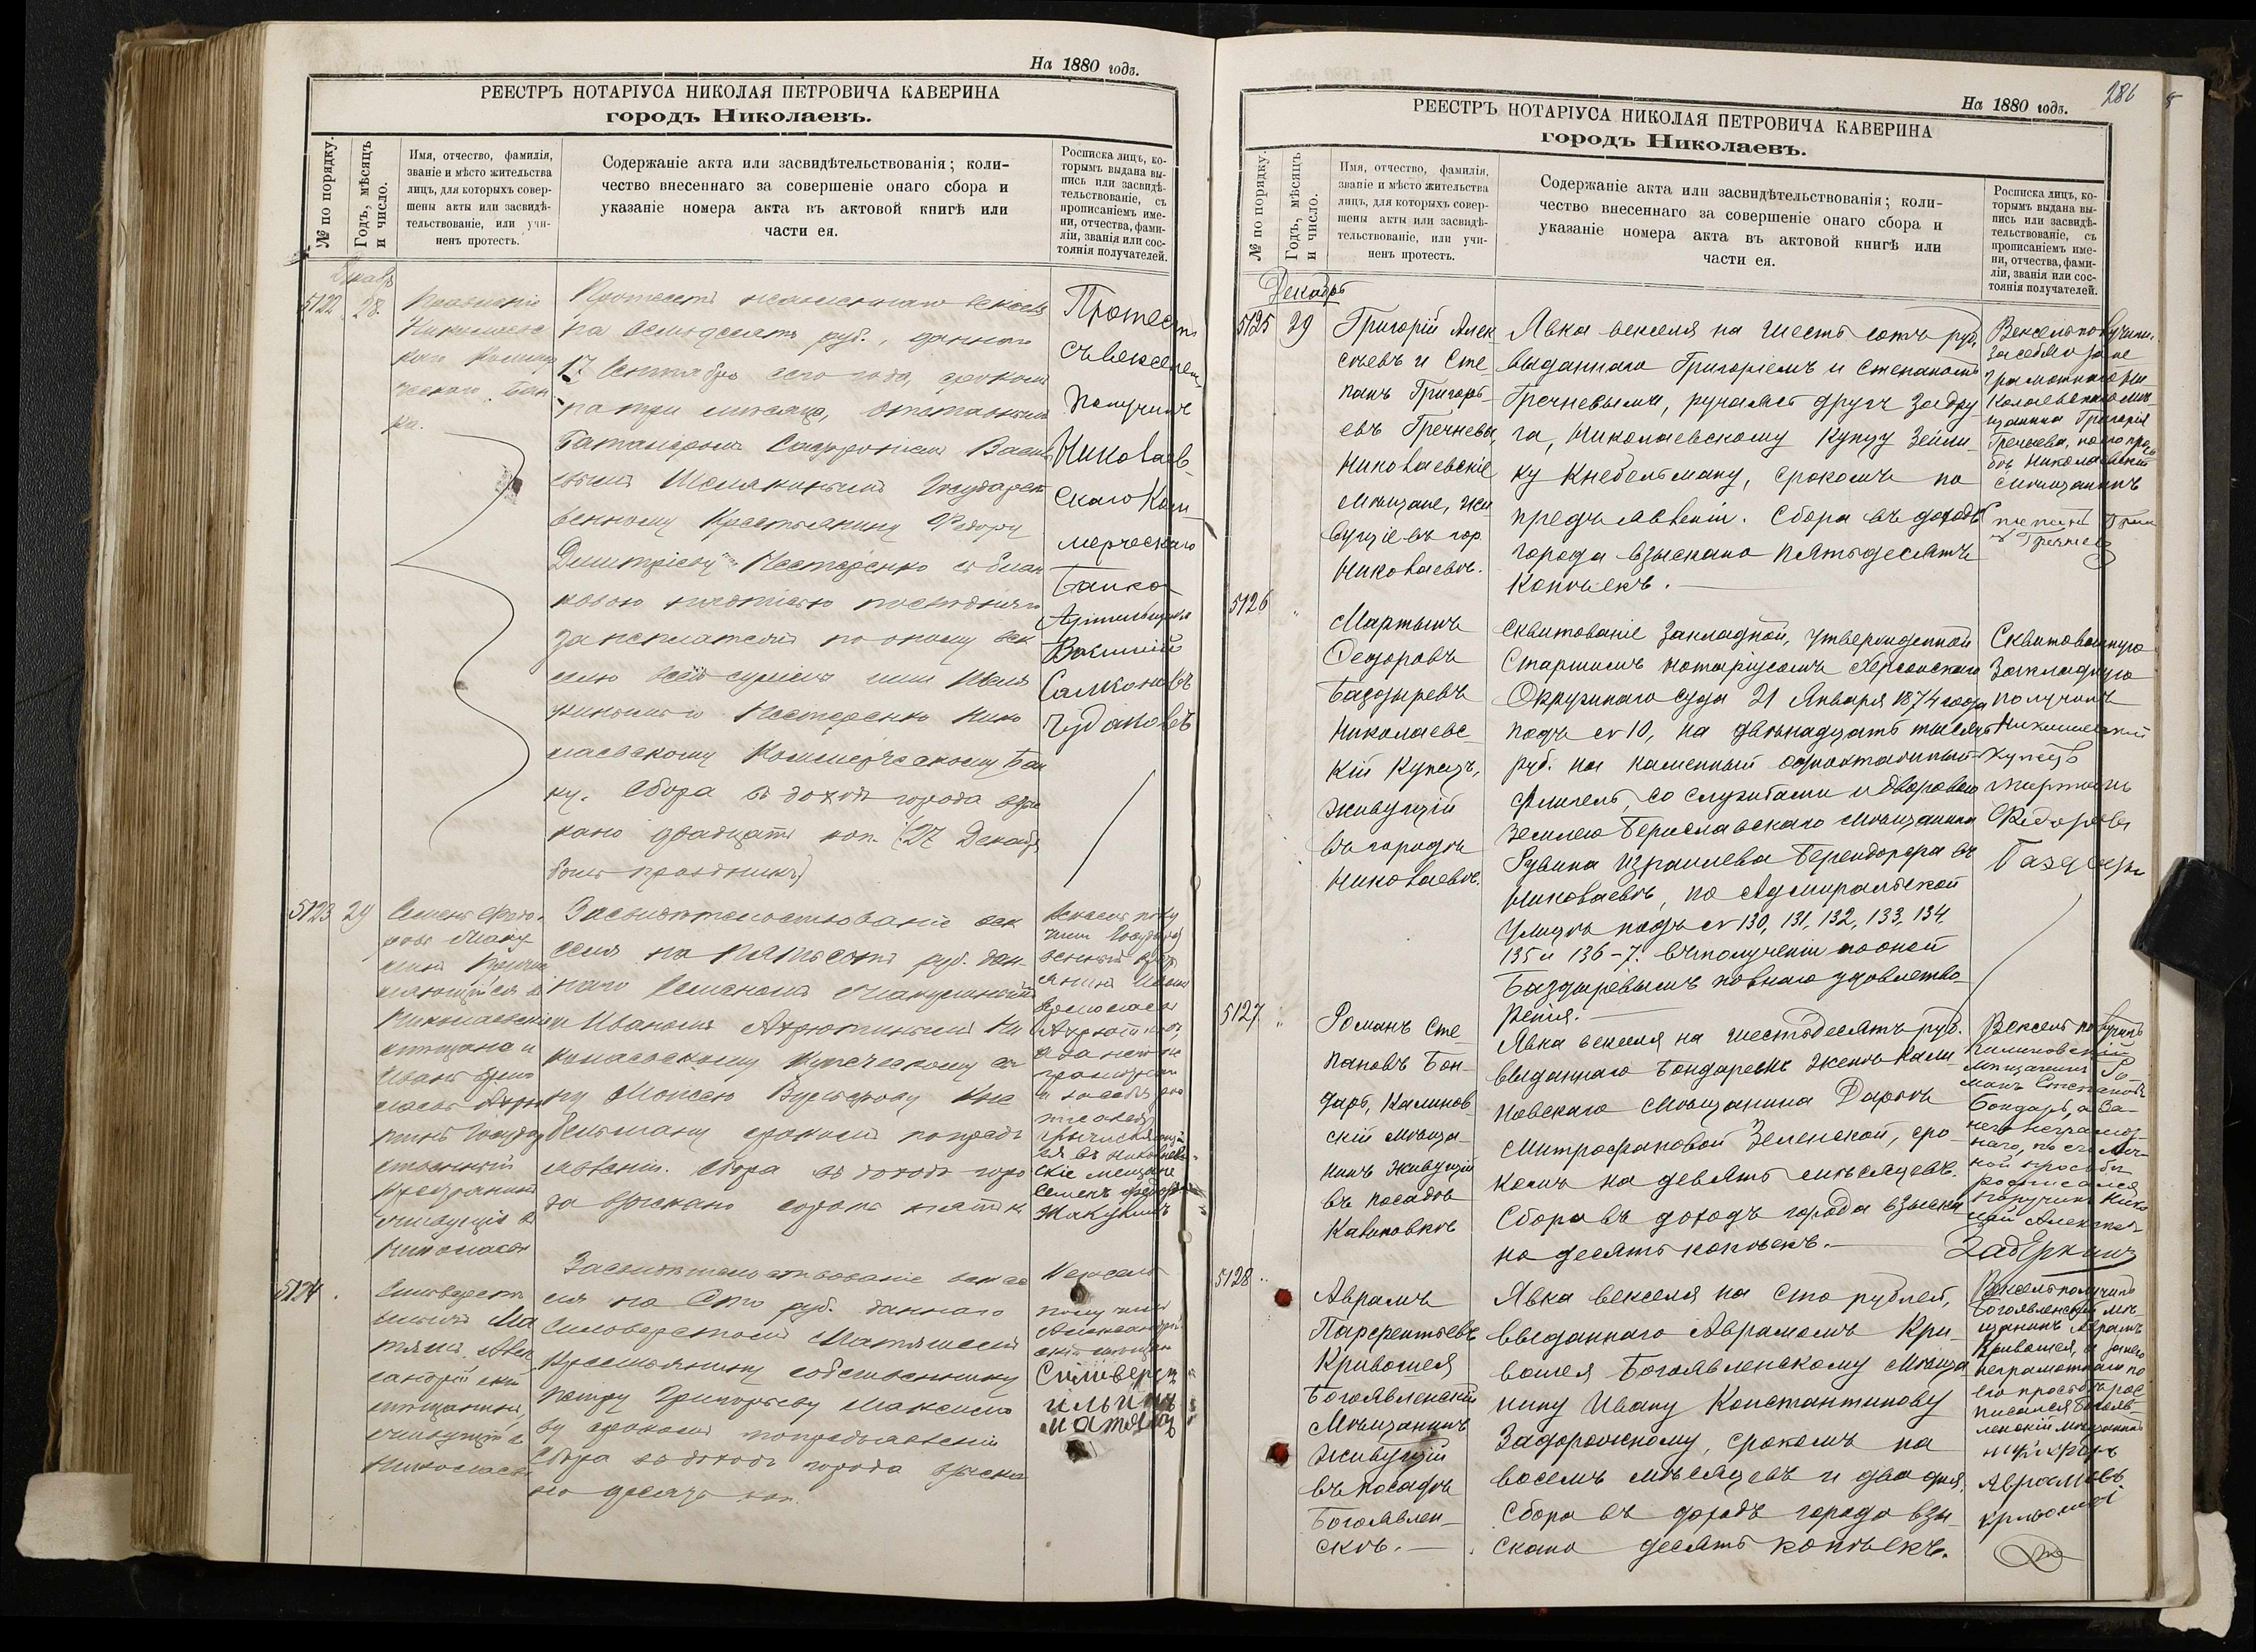 На 1880 годъ.
РЕЕСТРЪ НОТАРІУСА НИКОЛАЯ ПЕТРОВИЧА КАВЕРИНА
городъ Николаевъ.
№ по порядку.
Годъ, мѣсяцъ
и число.
Имя, отчество, фамилія,
званіе и мѣсто жительства
лицъ, для которыхъ совер-
шены акты или засвидѣ-
тельствованіе, или учи-
ненъ протестъ.
Содержаніе акта или засвидѣтельствованія; коли-
чество внесеннаго за совершеніе онаго сбора и
указаніе номера акта въ актовой книгѣ или
части ея.
Росписка лицъ, ко-
торымъ выдана вы-
пись или засвидѣ-
тельствованіе, съ
прописаніемъ име-
ни, отчества, фами-
ліи, званія или сос-
тоянія получателей.
5122
28.
Правленіе
Николаевс
каго Коммер
ческаго Бан
ка.
Протестъ неплатежа векселя
на Семьдесятъ руб., даннаго
17 Сентября сего года, срокомъ
на три мѣсяца, отставнымъ
венному Крестьянину Федору
Дмитріеву Нестеренко съ блан
ковою надписью послѣдняго
за неплатежъ по оному век
селю всей суммы
Нестеренко Нико
лаевскому Коммерческому Бан
ку. Сбора въ доходъ города взы
скано двадцать коп. (27 Декабря
былъ праздникъ)
Протестъ
съ векселемъ
Получилъ
Николаев-
скаго Ком-
мерческаго
Банка
Артельщикъ
Василій
Чудаковъ
5123
29
Семенъ Федо-
ровъ
Николаевскіе
мѣщане и
Иванъ Ермо
лаевъ
крестьянинъ
живущіе въ
Николаевѣ
Засвидѣтельствованіе век
селя на пятьсотъ руб. дан-
наго Семеномъ
и Иваномъ Ахрютинымъ Ни
колаевскому купеческому сы
ну Моисею Вульфову Кне
бельману срокомъ по предъ
явленіи. Сбора въ доходъ горо
да взыскано сорокъ пять к
Вексель полу
чили
Иванъ
Ермолаевъ
Ахрютинъ,
а за него не
грамотнаго
и за себя рос
ся въ Николаев-
скіе мещане
Семенъ Федоро
5124
живущій въ
Николаевѣ
Засвидѣтельствованіе вексе
ля на Сто руб. даннаго
Силоверстомъ Матяшемъ
Крестьянину собственнику
Петру Григорьеву Максимо
ву срокомъ по предъявленіи
Сбора въ доходъ города взыска
но десять коп.
Вексель
получилъ
Силиверст
ильинъ
Матяшъ
На 1880 годъ.
286
РЕЕСТРЪ НОТАРІУСА НИКОЛАЯ ПЕТРОВИЧА КАВЕРИНА
городъ Николаевъ.
№ по порядку.
Годъ, мѣсяцъ
и число.
Имя, отчество, фамилія,
званіе и мѣсто жительства
лицъ, для которыхъ совер-
шены акты или засвидѣ-
тельствованіе, или учи-
ненъ протестъ.
Содержаніе акта или засвидѣтельствованія; коли-
чество внесеннаго за совершеніе онаго сбора и
указаніе номера акта въ актовой книгѣ или
части ея.
Росписка лицъ, ко-
торымъ выдана вы-
пись или засвидѣ-
тельствованіе, съ
прописаніемъ име-
ни, отчества, фами-
ліи, званія или сос-
тоянія получателей.
Декабрь
5125
29
Григорій Алек
сѣевъ и Сте
панъ Григорь-
евъ Гречневы
Николаевскіе
Мѣщане, жи
вущіе въ гор
Николаевѣ.
Явка векселя на шесть сотъ руб.
выданнаго Григоріемъ и Степаномъ
Гречневыми, ручаясь другъ за дру
га, Николаевскому Купцу Зейли
ку Кнебельману, срокомъ по
предъявленіи. Сбора въ доходъ
города взыскано пятьдесятъ
Копѣекъ.
Вексель получили
за себя и за не
грамотнаго Ни-
колаевскаго мѣ-
щанина Григорія
Гречнева, по его прось
бѣ Николаевскій
мѣщанинъ
5126
Мартынъ
Федоровъ
Баздыревъ
Николаевс-
кій Купецъ,
живущій
въ городѣ
Николаевѣ.
Сквитованіе закладной, утвержденной
Старшимъ нотаріусомъ Херсонскаго
Окружнаго суда 21 Января 1874 года
подъ № 10, на двѣнадцать тысячъ
руб. на каменный одноэтажный
флигель, со службами и дворовою
землею Бериславскаго мѣщанина
Рувина Израилева Берендорфа въ
Николаевѣ, по Адмиральской
Улицѣ подъ № 130, 131, 132, 133, 134
135 и 136-7. въ полученіи по оной
Баздыревымъ полнаго удовлетво-
ренія.
Сквитованную
Закладную
получилъ
Николаевскій
Купецъ
Мартынъ
Федоровъ
5127
Романъ Сте
пановъ Бон-
дарь, Калинов-
скій мѣща-
нинъ живущій
въ посадѣ
Калиновкѣ
Явка векселя на шестьдесятъ руб.
выданнаго Бондаремъ женѣ Кали-
новскаго мѣщанина Дарьѣ
Митрофановой Зеленской, сро-
комъ на девять мѣсяцевъ.
Сбора въ доходъ города взыска
но десять копѣекъ.
Вексель получилъ
Калиновскій
мѣщанинъ Ро-
манъ Степановъ
Бондарь, а за
него неграмот-
наго, по его лич-
ной просьбѣ
росписался
Поручикъ Нико
лай
5128
Аврамъ
Парфентьевъ
Кривошея
Богоявленскій
Мѣщанинъ
живущій
въ посадѣ
Богоявлен-
скѣ.
Явка векселя на сто рублей,
выданнаго Аврамомъ Кри-
вошея Богоявленскому мѣща
нину Ивану Константинову
Задорожному, срокомъ на
восемь мѣсяцевъ и два дня.
Сбора въ доходъ города взы-
скано десять копѣекъ.
Вексель получилъ
Богоявленскій мѣ-
щанинъ Аврамъ
Кривошея, а за него
неграмотнаго по
его просьбѣ рос-
писался Богояв-
ленскій мѣщанинъ
Аврамовъ